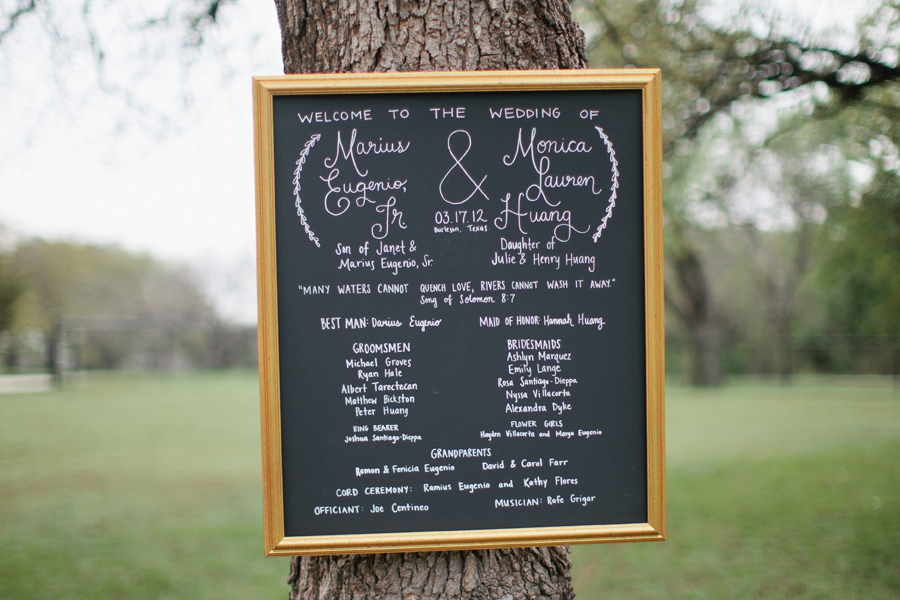 WELCOME TO THE WEDDING OF
Marius Eugenio, Jr
&
Monica Lauren Huang
03.17.12
Burleson, Texas
Son of Janet &
Marius Eugenio, Sr.
Daughter of
Julie & Henry Huang
"MANY WATERS CANNOT QUENCH LOVE, RIVERS CANNOT WASH IT AWAY."
Song of Solomon 8:7
BEST MAN: Darius Eugenio
MAID OF HONOR: Hannah Huang
GROOMSMEN
Michael Groves
Ryan Hale
Albert Tarectecan
Matthew Bickston
Peter Huang
RING BEARER
Joshua Santiago-Dieppa
BRIDESMAIDS
Ashlyn Marquez
Emily Lange
Rosa Santiago-Dieppa
Nyssa Villacorta
Alexandra Dyke
FLOWER GIRLS
Hayden Villacorta and Margo Eugenio
GRANDPARENTS
Romon & Fenicia Eugenio David & Carol Farr
CORD CEREMONY: Ramius Eugenio and Kathy Flores
OFFICIANT: Joe Centineo
MUSICIAN: Rafe Grigar